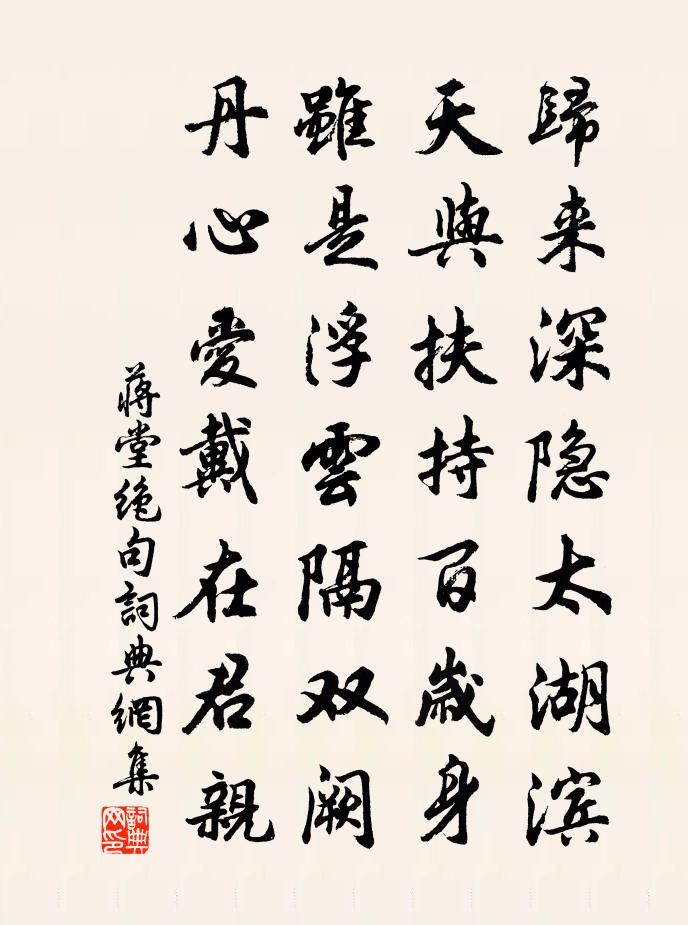 歸来深隐太湖滨
天與扶持百歲身
雖是浮雲隔双阙
丹心愛戴在君親
蒋堂绝句詞典網集
詞典网印